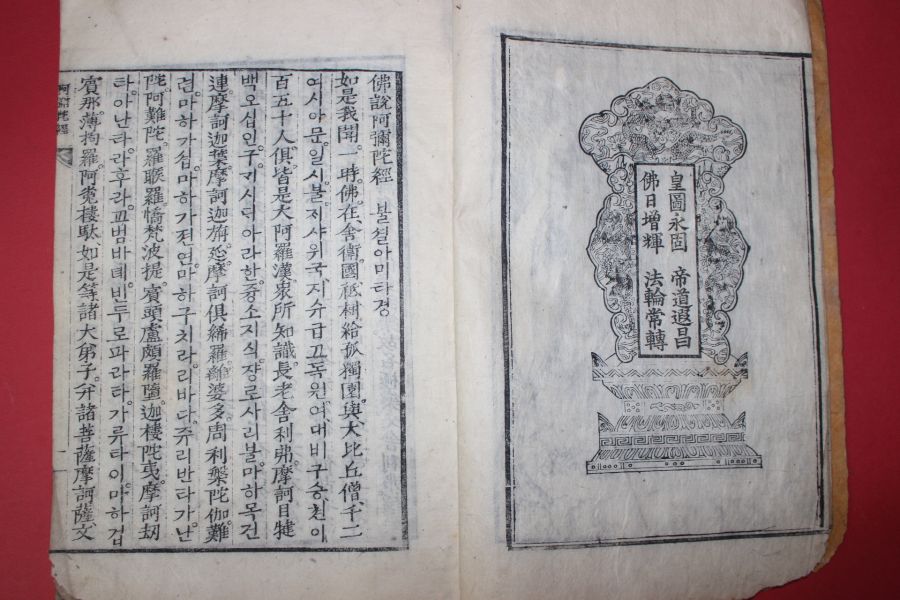 皇圖永固 帝道遐昌
佛日增輝 法輪常轉
佛說阿彌陀經 불셜아미타경
如是我聞。一時。佛在舍衛國祗樹給孤獨園。與大比丘僧。千二
여시아문。일시。불재샤위국지슈급고독원。여대비구승。천이
百五十人俱。皆是大阿羅漢。衆所知識。長老舍利弗。摩訶目犍
백오십인구。개시대아라한。즁소지식。쟝로사리불。마하목건
連。摩訶迦葉。摩訶迦旃延。摩訶俱絺羅。離婆多。周利槃陀伽。難
련。마하가섭。마하가젼연。마하구치라。리바다。쥬리반타가。난
陀。阿難陀。羅睺羅。憍梵波提。賓頭盧頗羅墮。迦樓陀夷。摩訶劫
타。아난타。라후라。교범바뎨。빈두로파라타。가류타이。마하겁
賓那。薄拘羅。阿㝹樓馱。如是等諸大弟子。幷諸菩薩摩訶薩。文
阿彌陀經